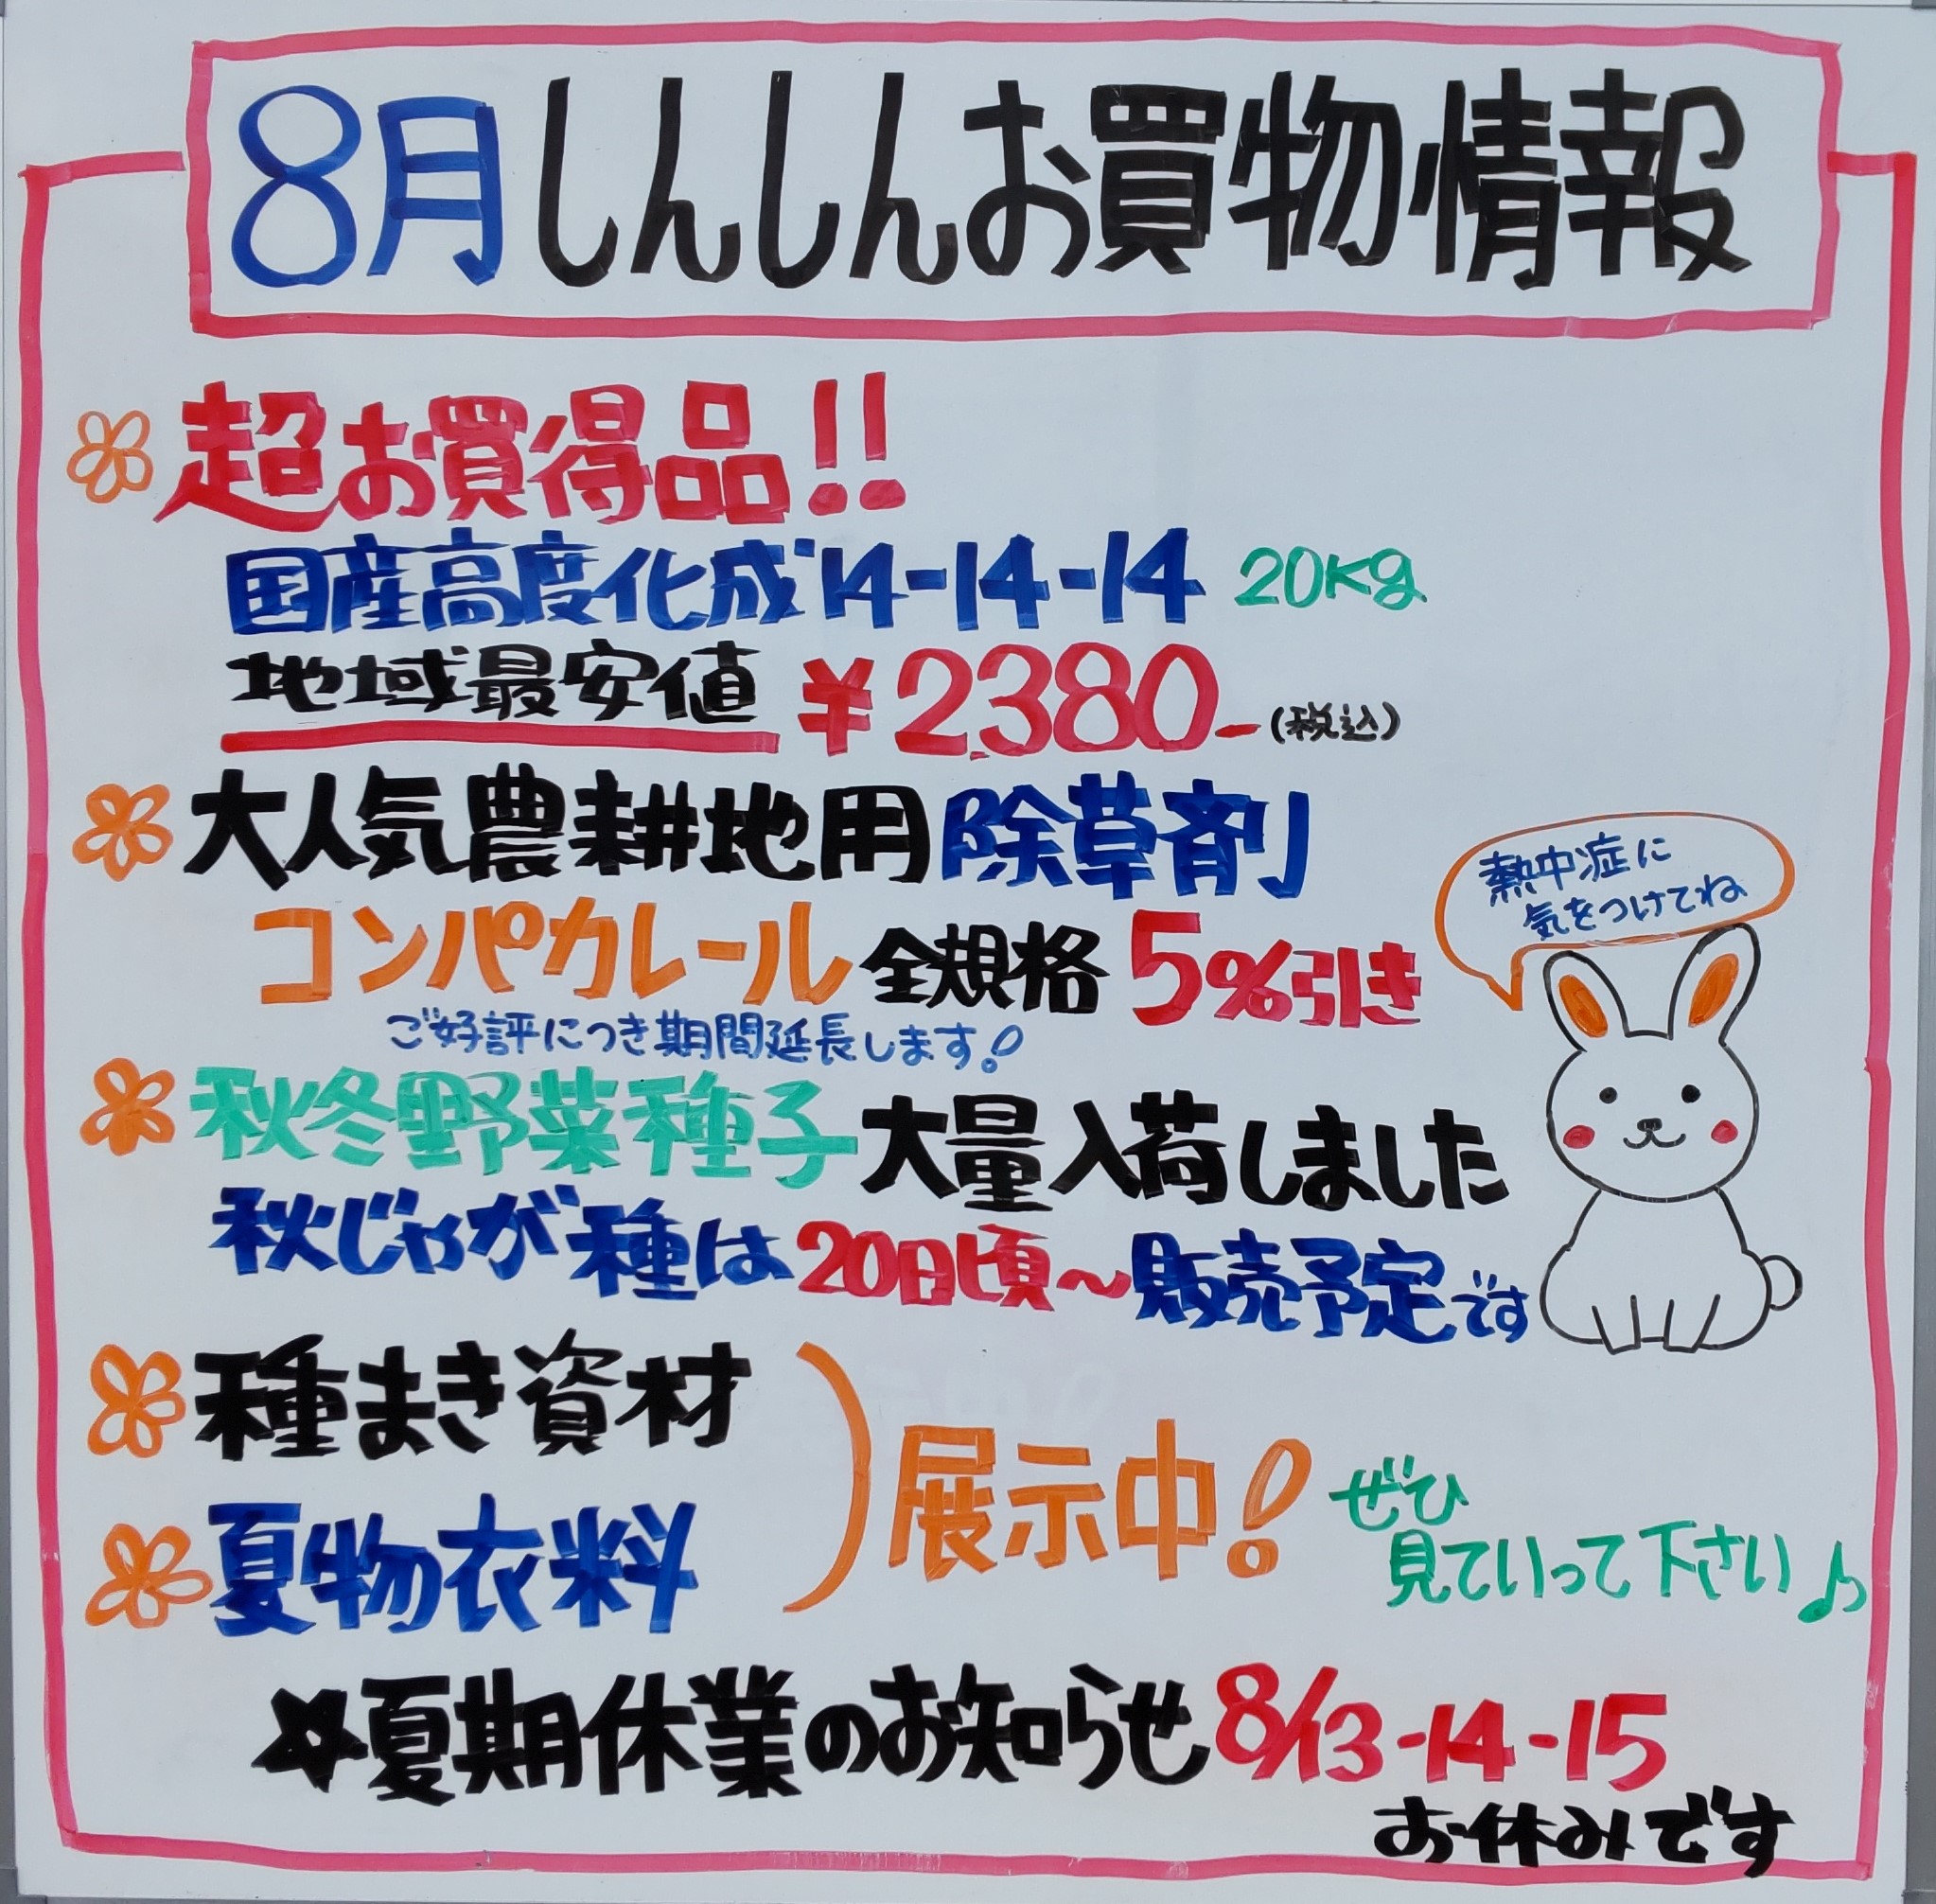 8月しんしんお買物情報
超お買得品!!
国産高度化成14-14-14 20Kg
地域最安値 ¥2,380- (税込)
大人気農耕地用除草剤
コンパカレール全規格5%引き
ご好評につき期間延長します!
熱中症に
気をつけてね
秋冬野菜種子大量入荷しました
秋じゃが種は20日頃~販売予定です
種まき資材
夏物衣料
展示中!
ぜひ
見ていって下さい♪
☆夏期休業のお知らせ8/13-14-15
お休みです